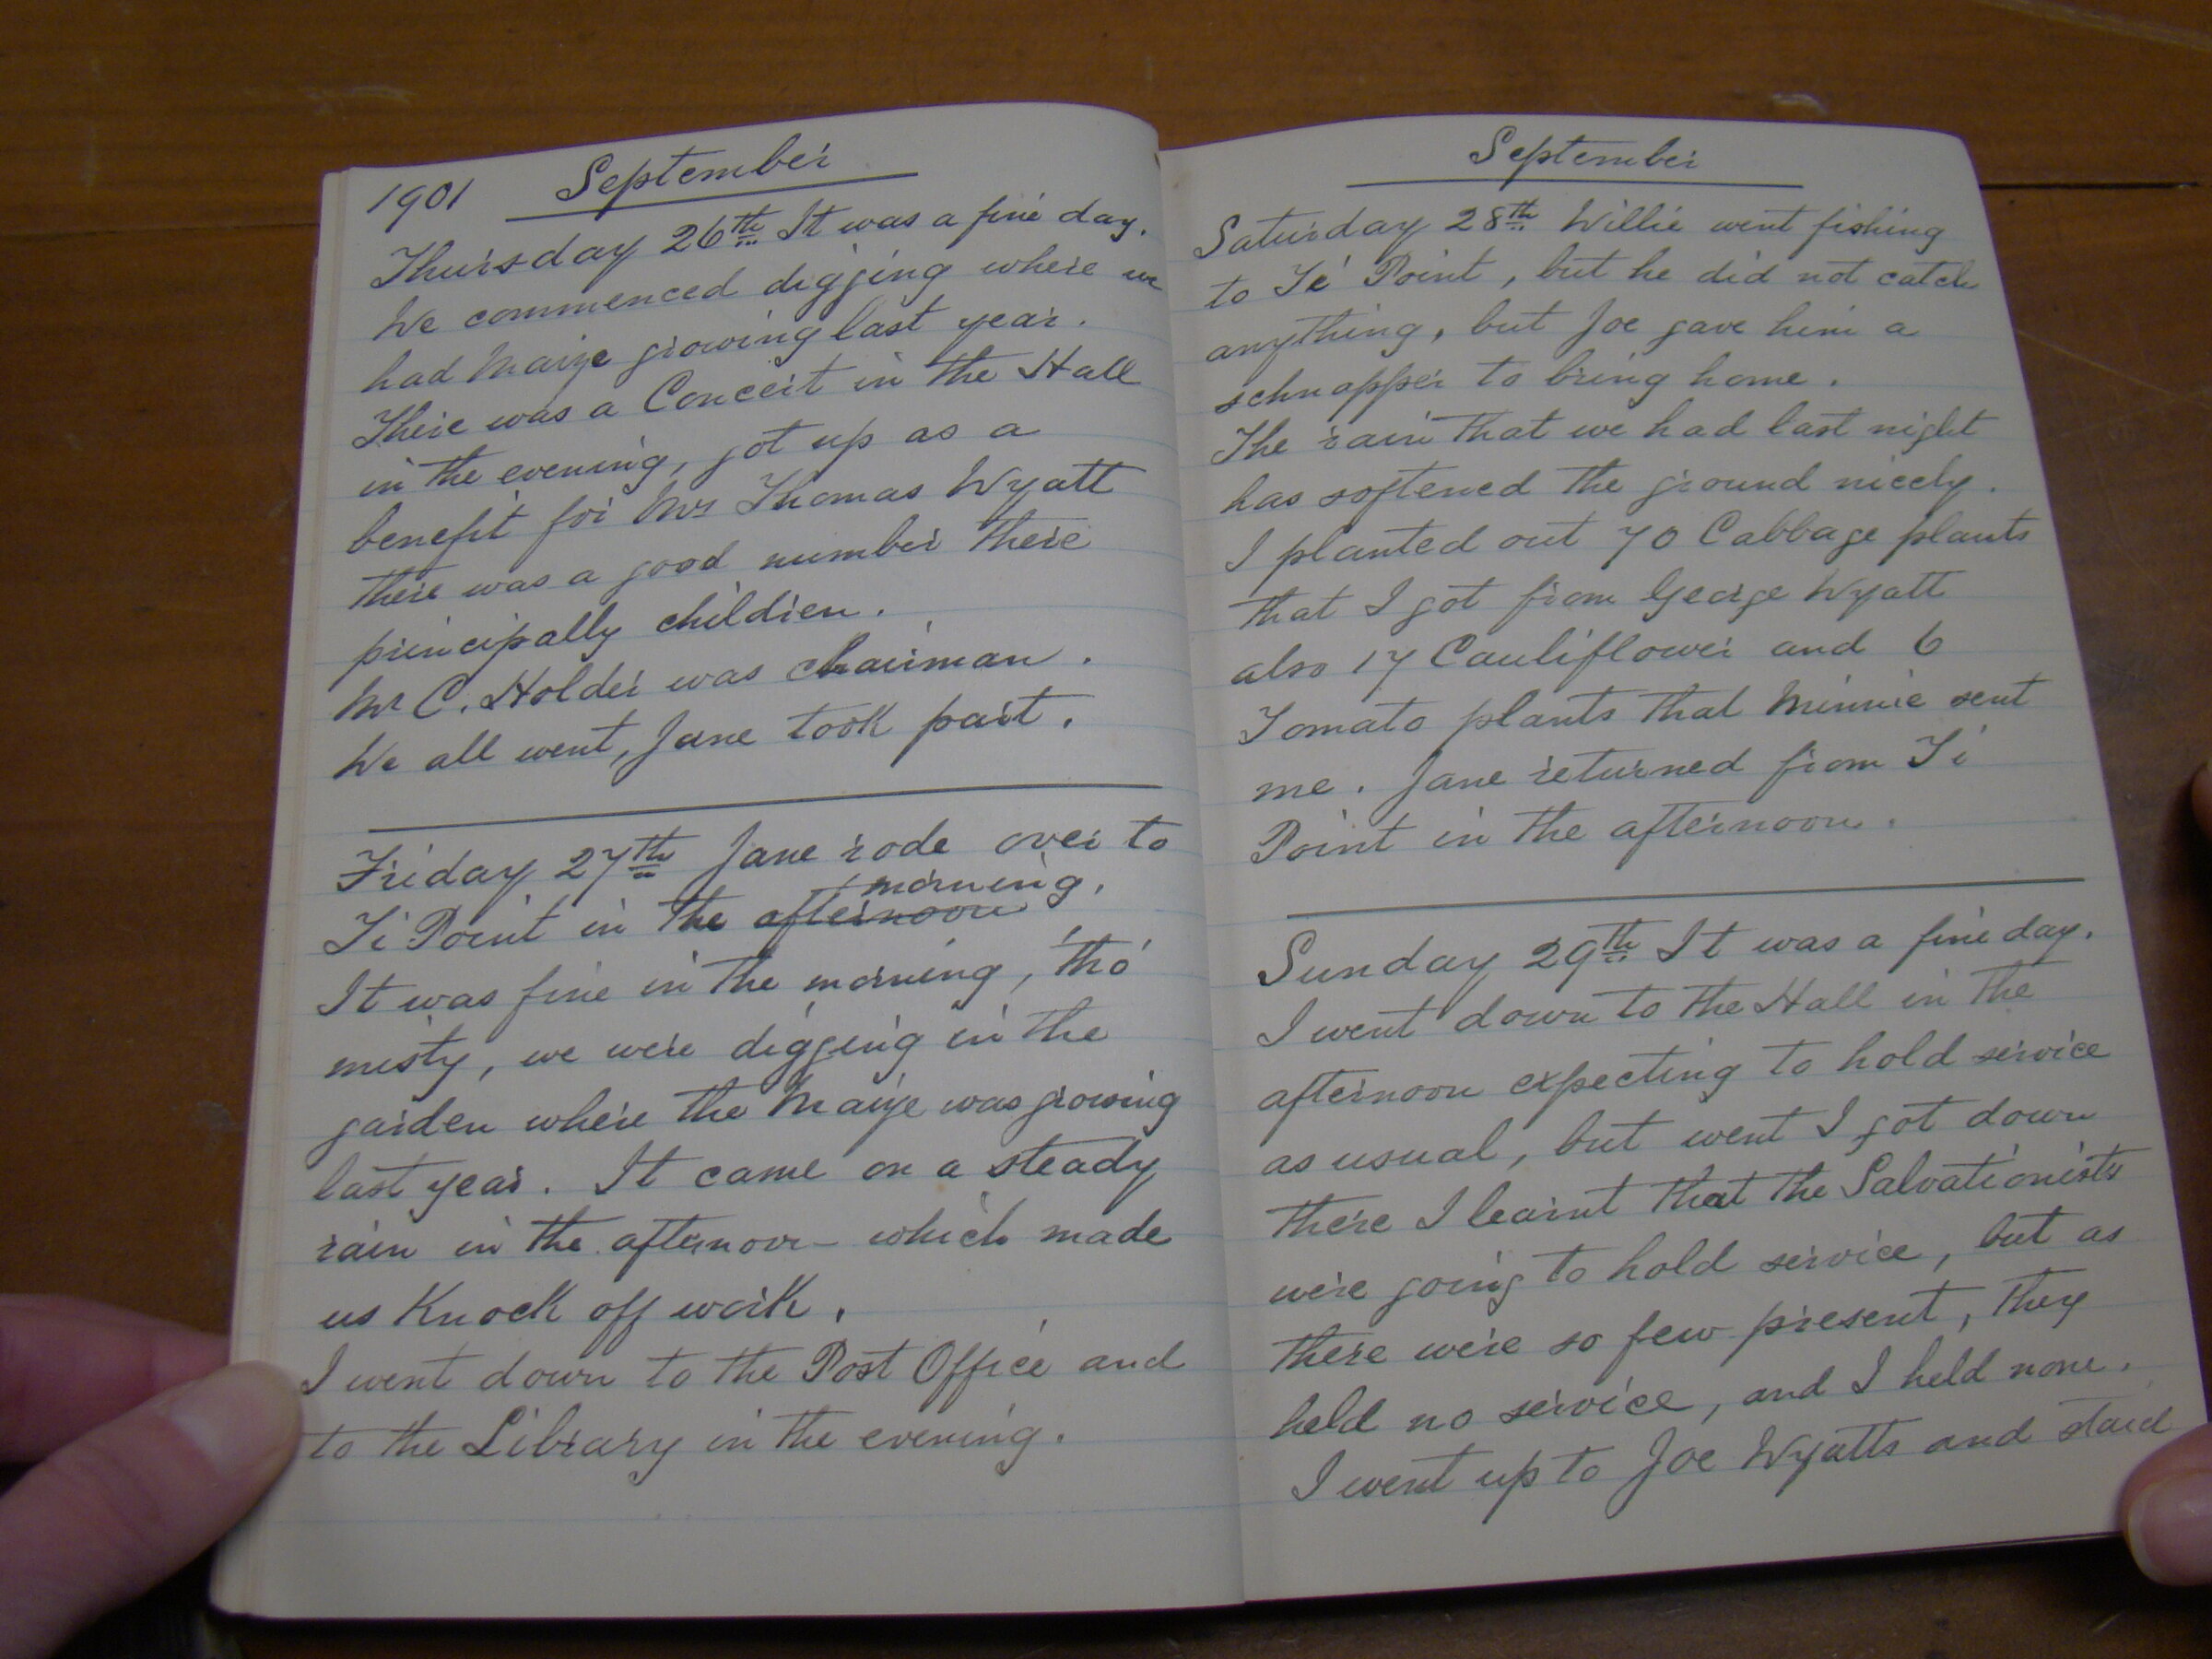 1901 September
Thursday 26th It was a fine day.
We commenced digging where we
had Maize growing last year.
There was a Concert in the Hall
in the evening, got up as a
benefit for Mrs Thomas Wyatt
there was a good number there
principally children.
Mr C. Holder was chairman.
We all went, Jane took part.
Friday 27th Jane rode over to
morning.
Ti Point in the afternoon
It was fine in the morning, tho'
misty, we were digging in the
garden where the Maize was growing
last year. It came on a steady
rain in the afternoon which made
us Knock off work.
I went down to the Post Office and
to the Library in the evening.
September
Saturday 28th Willie went fishing
to Ti Point, but he did not catch
anything, but Joe gave him a
schnapper to bring home.
The rain that we had last night
has softened the ground nicely.
I planted out 70 Cabbage plants
that I got from George Wyatt
also 17 Cauliflower and 6
Tomato plants that Minnie sent
me. Jane returned from Ti
Point in the afternoon.
Sunday 29th It was a fine day.
I went down to the Hall in the
afternoon expecting to hold service
as usual, but went I got down
there I learnt that the Salvationists
were going to hold service, but as
there were so few present, they
held no service, and I held none.
I went up to Joe Wyatts and staid